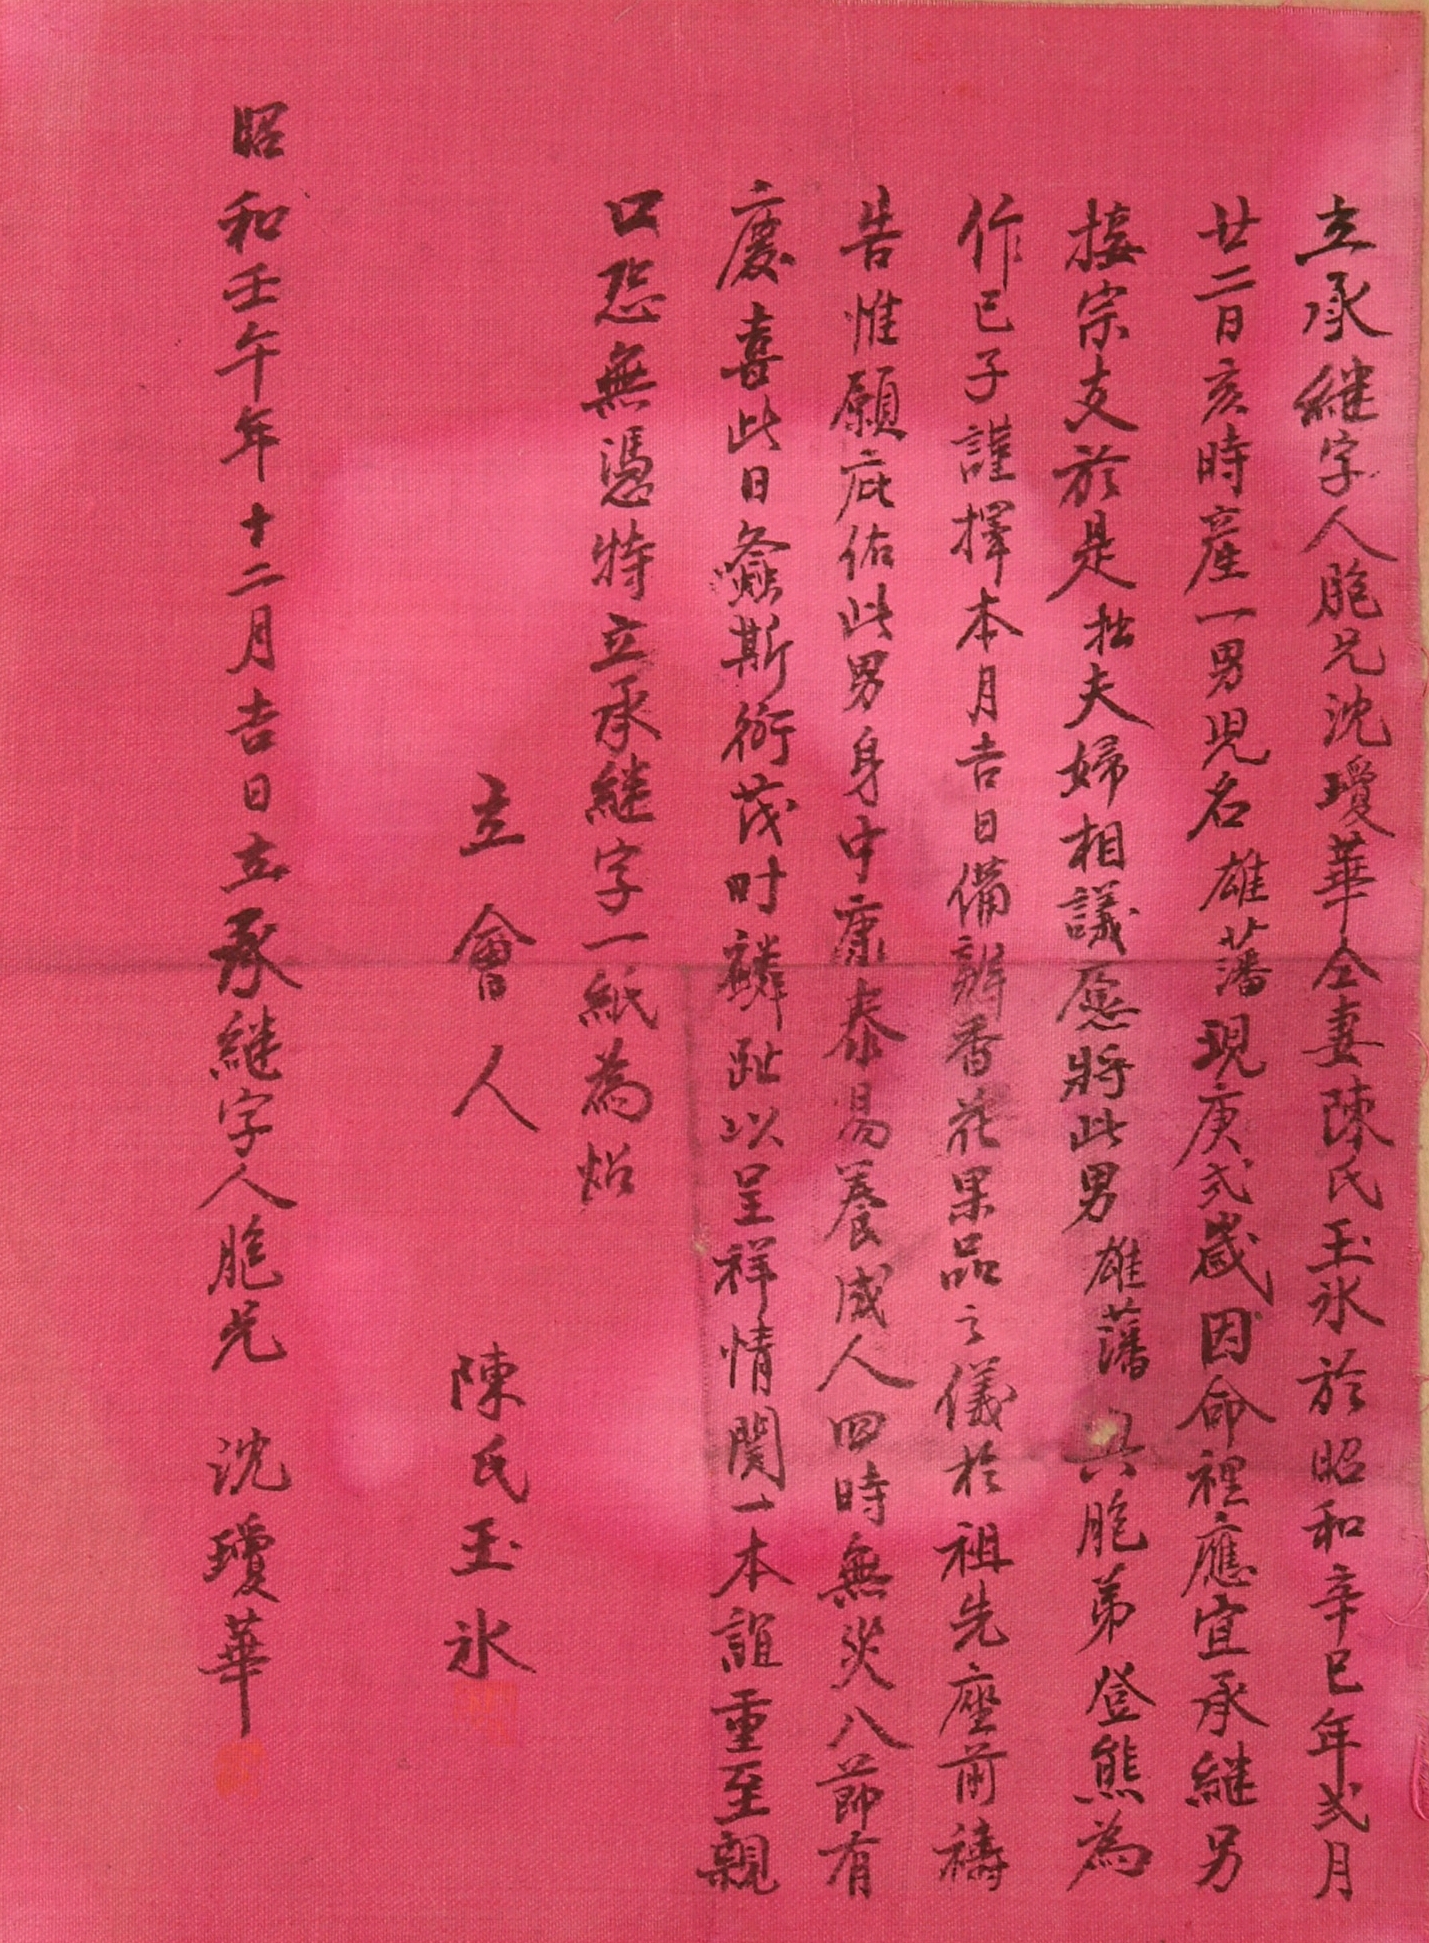 立承継字人胞兄沈瓊華仝妻陳氏玉氷於昭和辛巳年弍月
廿二日亥時産一男児名雄藩現庚弍歳因命裡應宜承継另
接宗支於是拙夫婦相議愿將此男雄藩與胞弟登熊為
作己子謹擇本月吉日備辦香花果品之儀於祖先座前禱
告惟願庇佑此男身中康泰易養成人四時無災八節有
慶喜此日螽斯衍茂时麟趾以呈祥情関一本誼重至親
口恐無憑特立承継字一紙為炤
立會人 陳氏玉氷
昭和壬午年十二月吉日立承継字人胞兄 沈瓊華